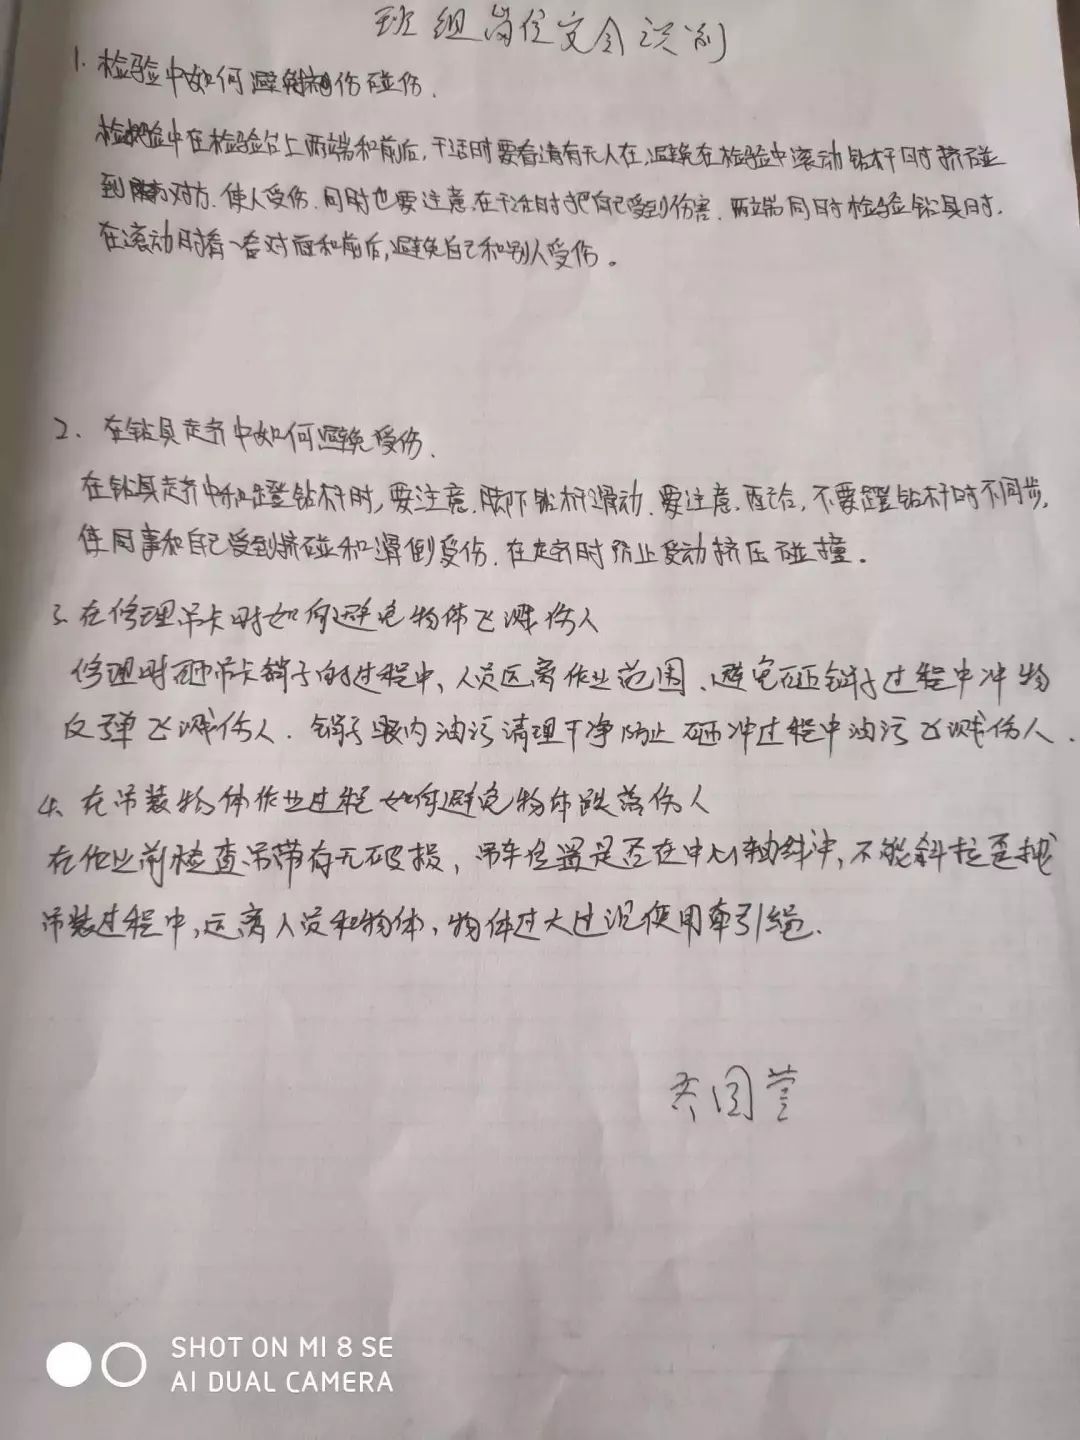 班组岗位安全识别
1. 检验中如何避免挤伤碰伤.
检验中在检验台上两端和前后,干活时要看清有无人在,避免在检验中滚动钻杆时挤碰
到对方.使人受伤.同时也要注意.在干活时把自己受到伤害.两端同时检验钻具时.
在滚动时看一看对面和前后,避免自己和别人受伤。
2、在钻具走齐中如何避免受伤.
在钻具走齐中和蹬钻杆时,要注意.脚下钻杆滑动.要注意.配合,不要蹬钻杆时不同步,
使同事和自己受到挤碰和滑倒受伤.在走齐时防止受动挤压碰撞。
3、在修理吊卡时如何避免物体飞溅伤人
修理时砸吊卡销子的过程中,人员远离作业范围、避免砸销子过程中冲物
反弹飞溅伤人.销子眼内油污清理干净防止砸冲过程中油污飞溅伤人.
4、在吊装物体作业过程如何避免物体跌落伤人
在作业前检查吊带有无破损,吊车位置是否在中心轴线,不能斜拉歪拽
吊装过程中,远离人员和物体,物体过大过沉使用牵引绳.
SHOT ON MI 8 SE
AI DUAL CAMERA